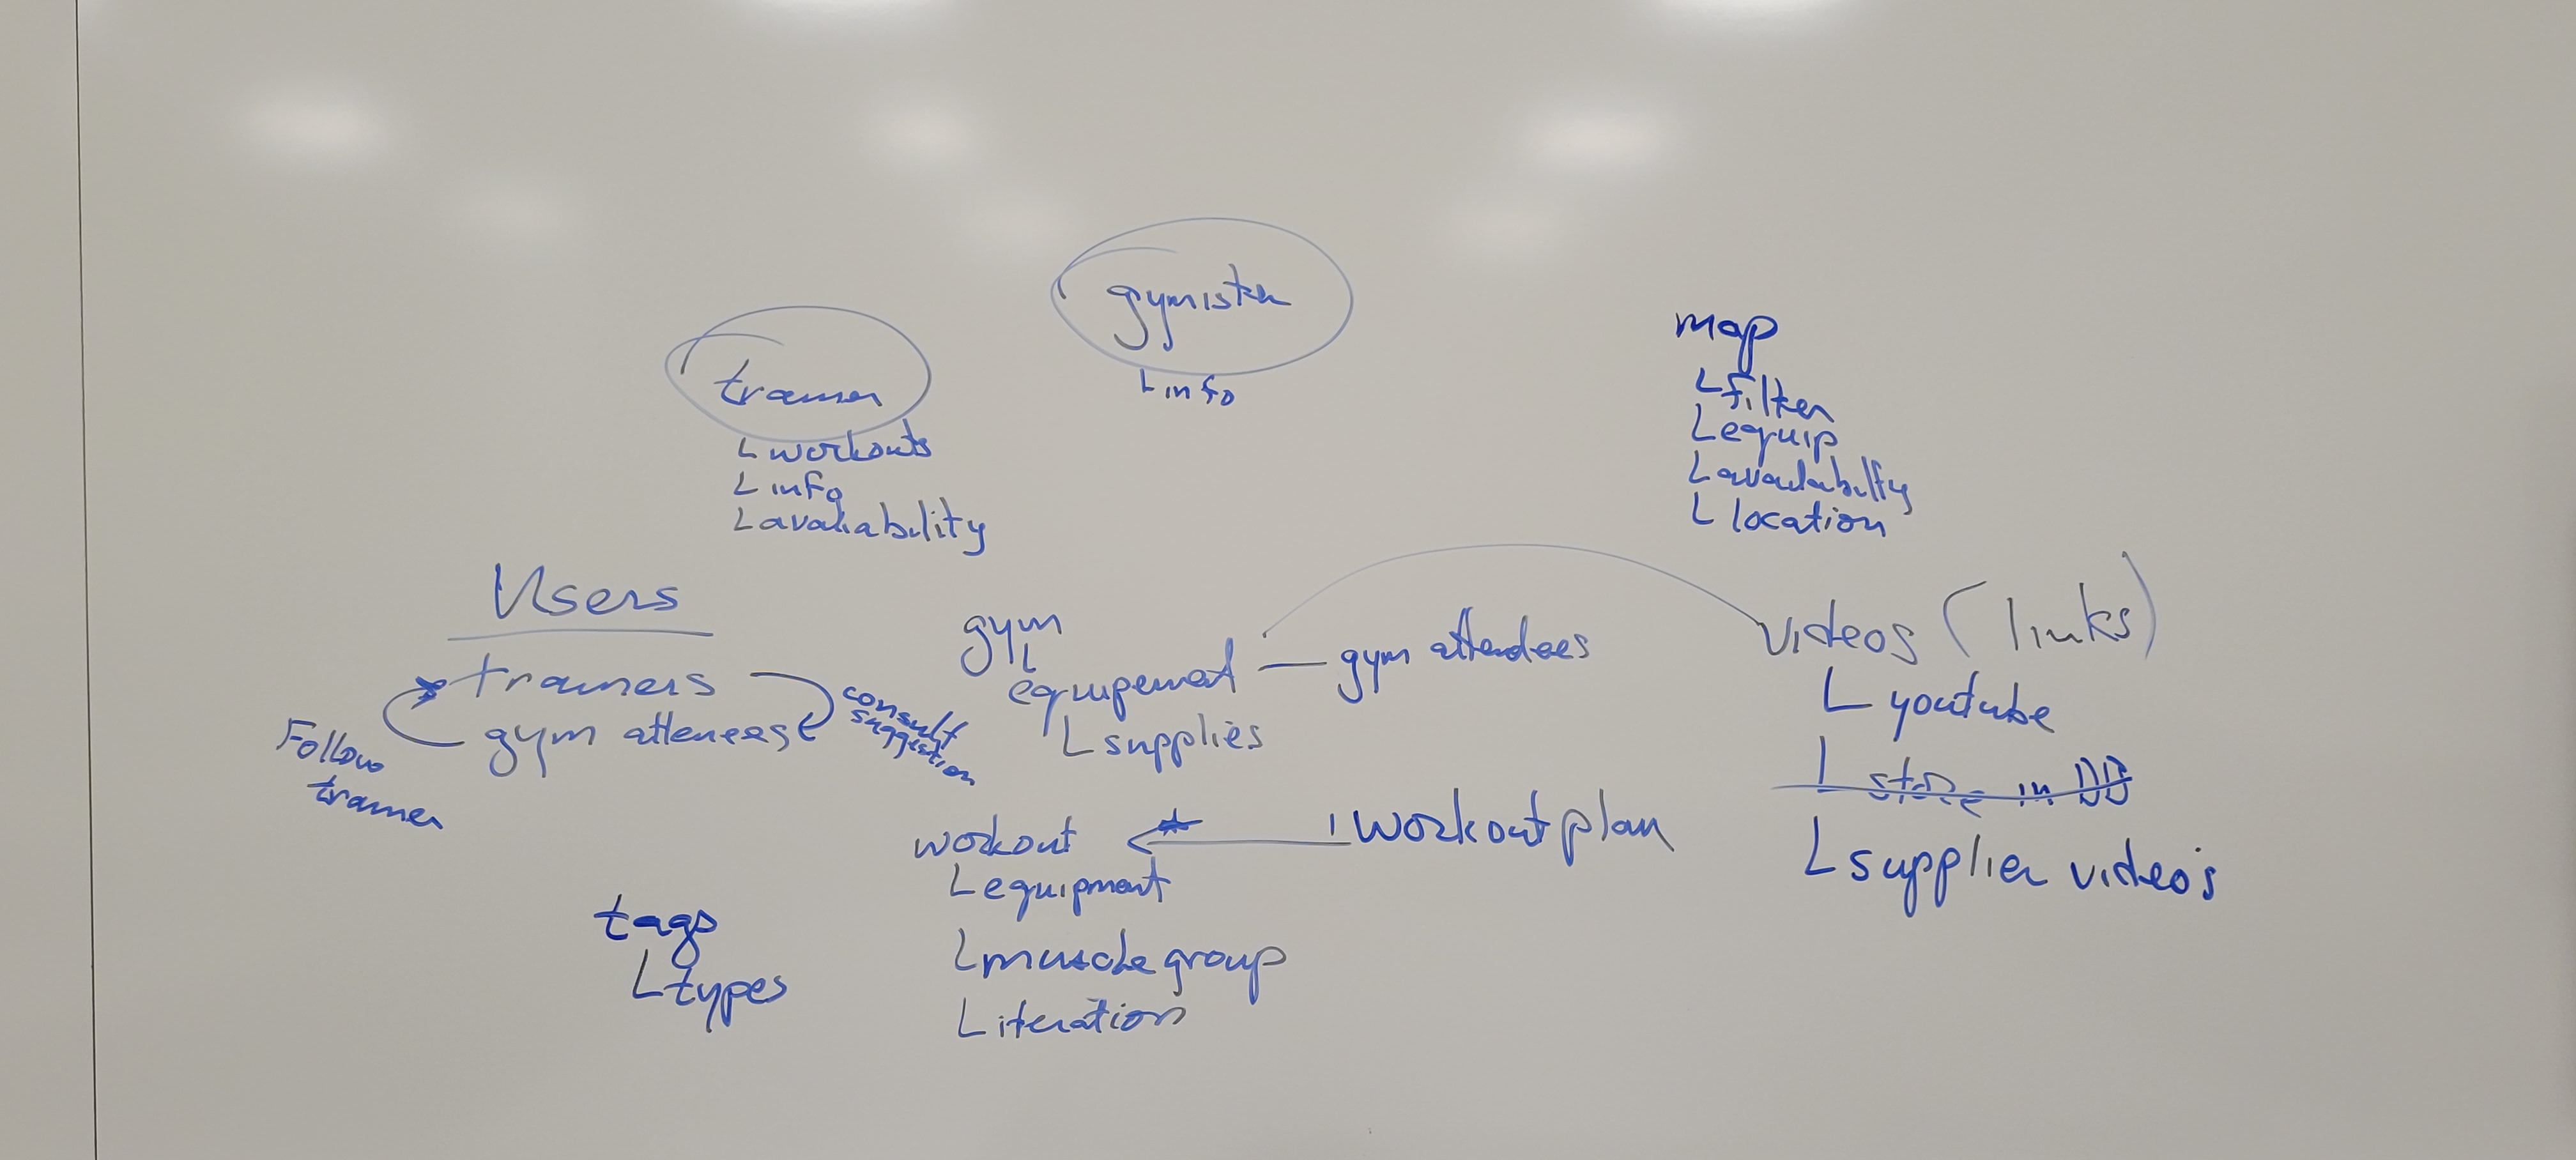 gymister
L info
trainer
L workouts
L info
L avaliability
map
L filter
L equip
L availability
L location
Users
trainers
gym attenees
Follow
trainer
consult
suggestion
gym
L
equipement — gym attendees
L supplies
videos (links)
L youtube
L store in DB
L supplier videos
workout * 1 workout plan
L equipment
L muscle group
L iteration
tags
L types